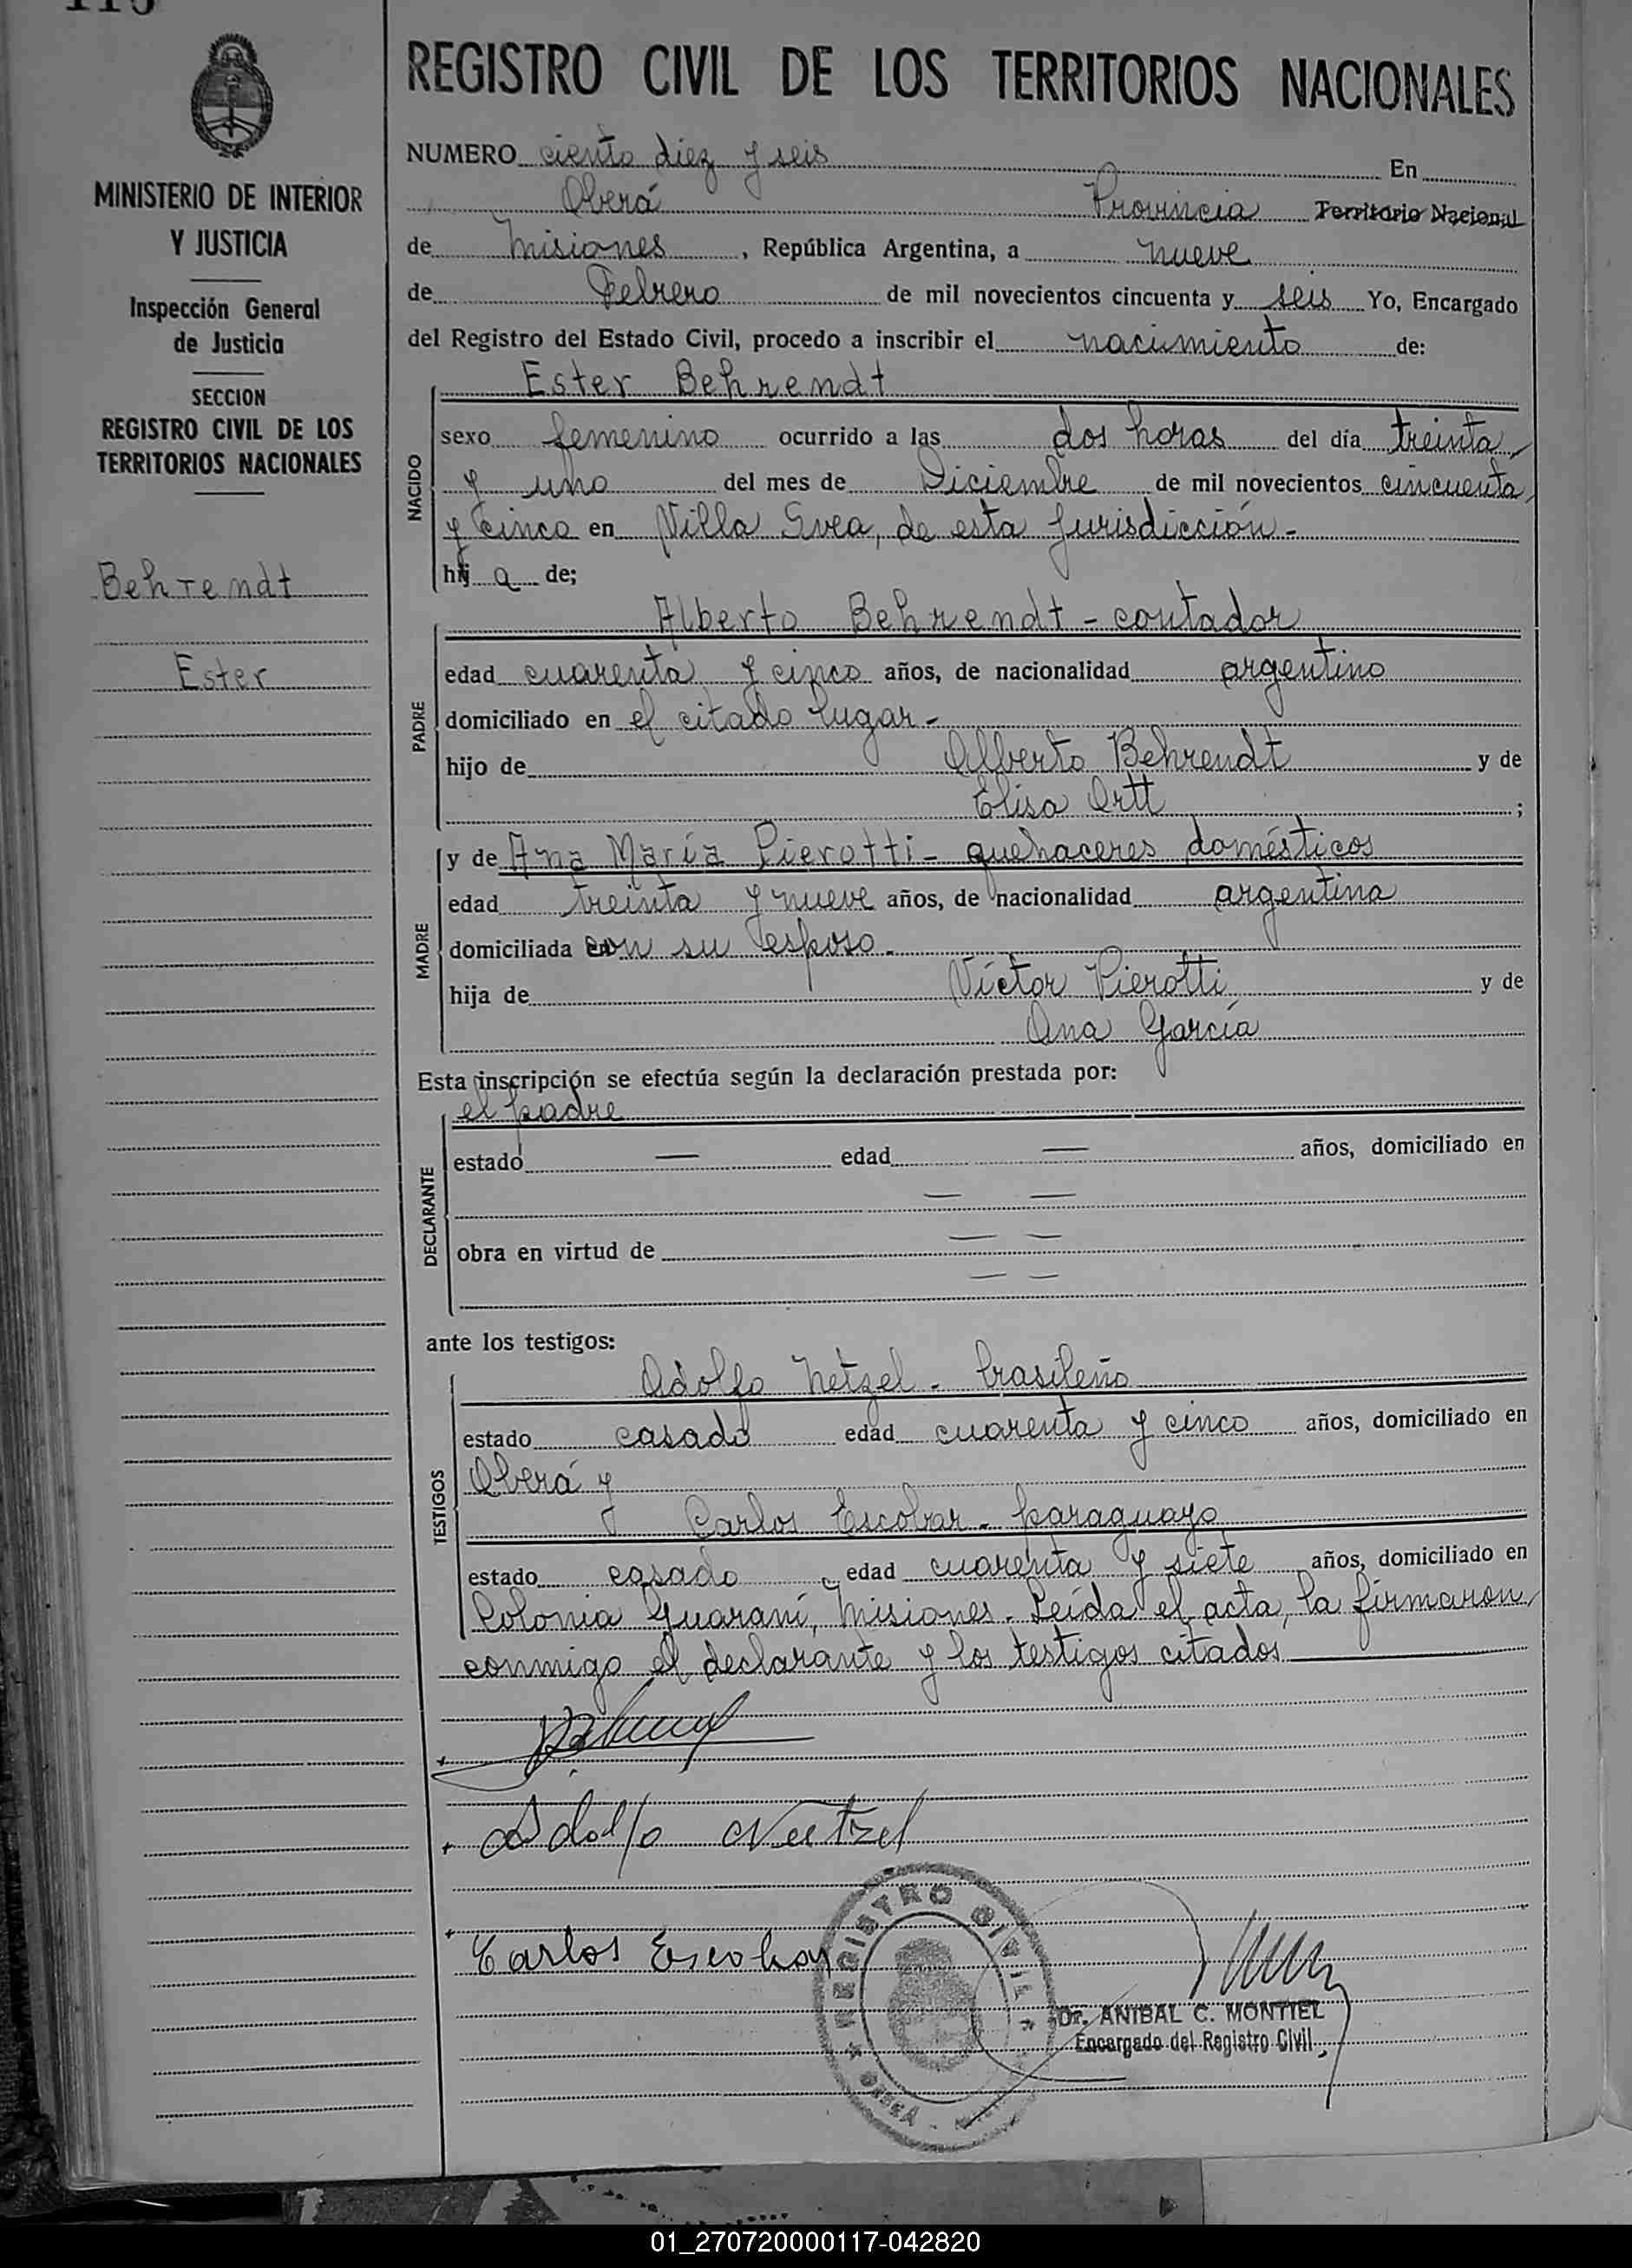 116
REGISTRO CIVIL DE LOS TERRITORIOS NACIONALES
MINISTERIO DE INTERIOR
Y JUSTICIA
Inspección General
de Justicia
SECCION
REGISTRO CIVIL DE LOS
TERRITORIOS NACIONALES
Behrendt
Ester
NUMERO ciento diez y seis En
Oberá Provincia Territorio Nacional
de Misiones, República Argentina, a nueve
de Febrero de mil novecientos cincuenta y seis Yo, Encargado
del Registro del Estado Civil, procedo a inscribir el nacimiento de:
NACIDO
Ester Behrendt
sexo femenino ocurrido a las dos horas del día treinta
y uno del mes de Diciembre de mil novecientos cincuenta
y cinco en Villa Svea, de esta Jurisdicción.-
hij a de;
PADRE
Alberto Behrendt - contador
edad cuarenta y cinco años, de nacionalidad argentino
domiciliado en el citado lugar.-
hijo de Alberto Behrendt y de
Elisa Ortt ;
MADRE
y de Ana María Pierotti - quehaceres domésticos
edad treinta y nueve años, de nacionalidad argentina
domiciliada con su esposo.
hija de Víctor Pierotti y de
Ana García
Esta inscripción se efectúa según la declaración prestada por:
DECLARANTE
el padre
estado — edad — años, domiciliado en
— —
obra en virtud de — —
— —
ante los testigos:
TESTIGOS
Adolfo Netzel - brasileño
estado casado edad cuarenta y cinco años, domiciliado en
Oberá y
Carlos Escobar - paraguayo
estado casado, edad cuarenta y siete años, domiciliado en
Colonia Guaraní, Misiones. Leída el acta, la firmaron
conmigo el declarante y los testigos citados
Adolfo Neetzel
Carlos Escobar
REGISTRO CIVIL
OBERÁ
Dr. ANIBAL C. MONTIEL
Encargado del Registro Civil
01_270720000117-042820